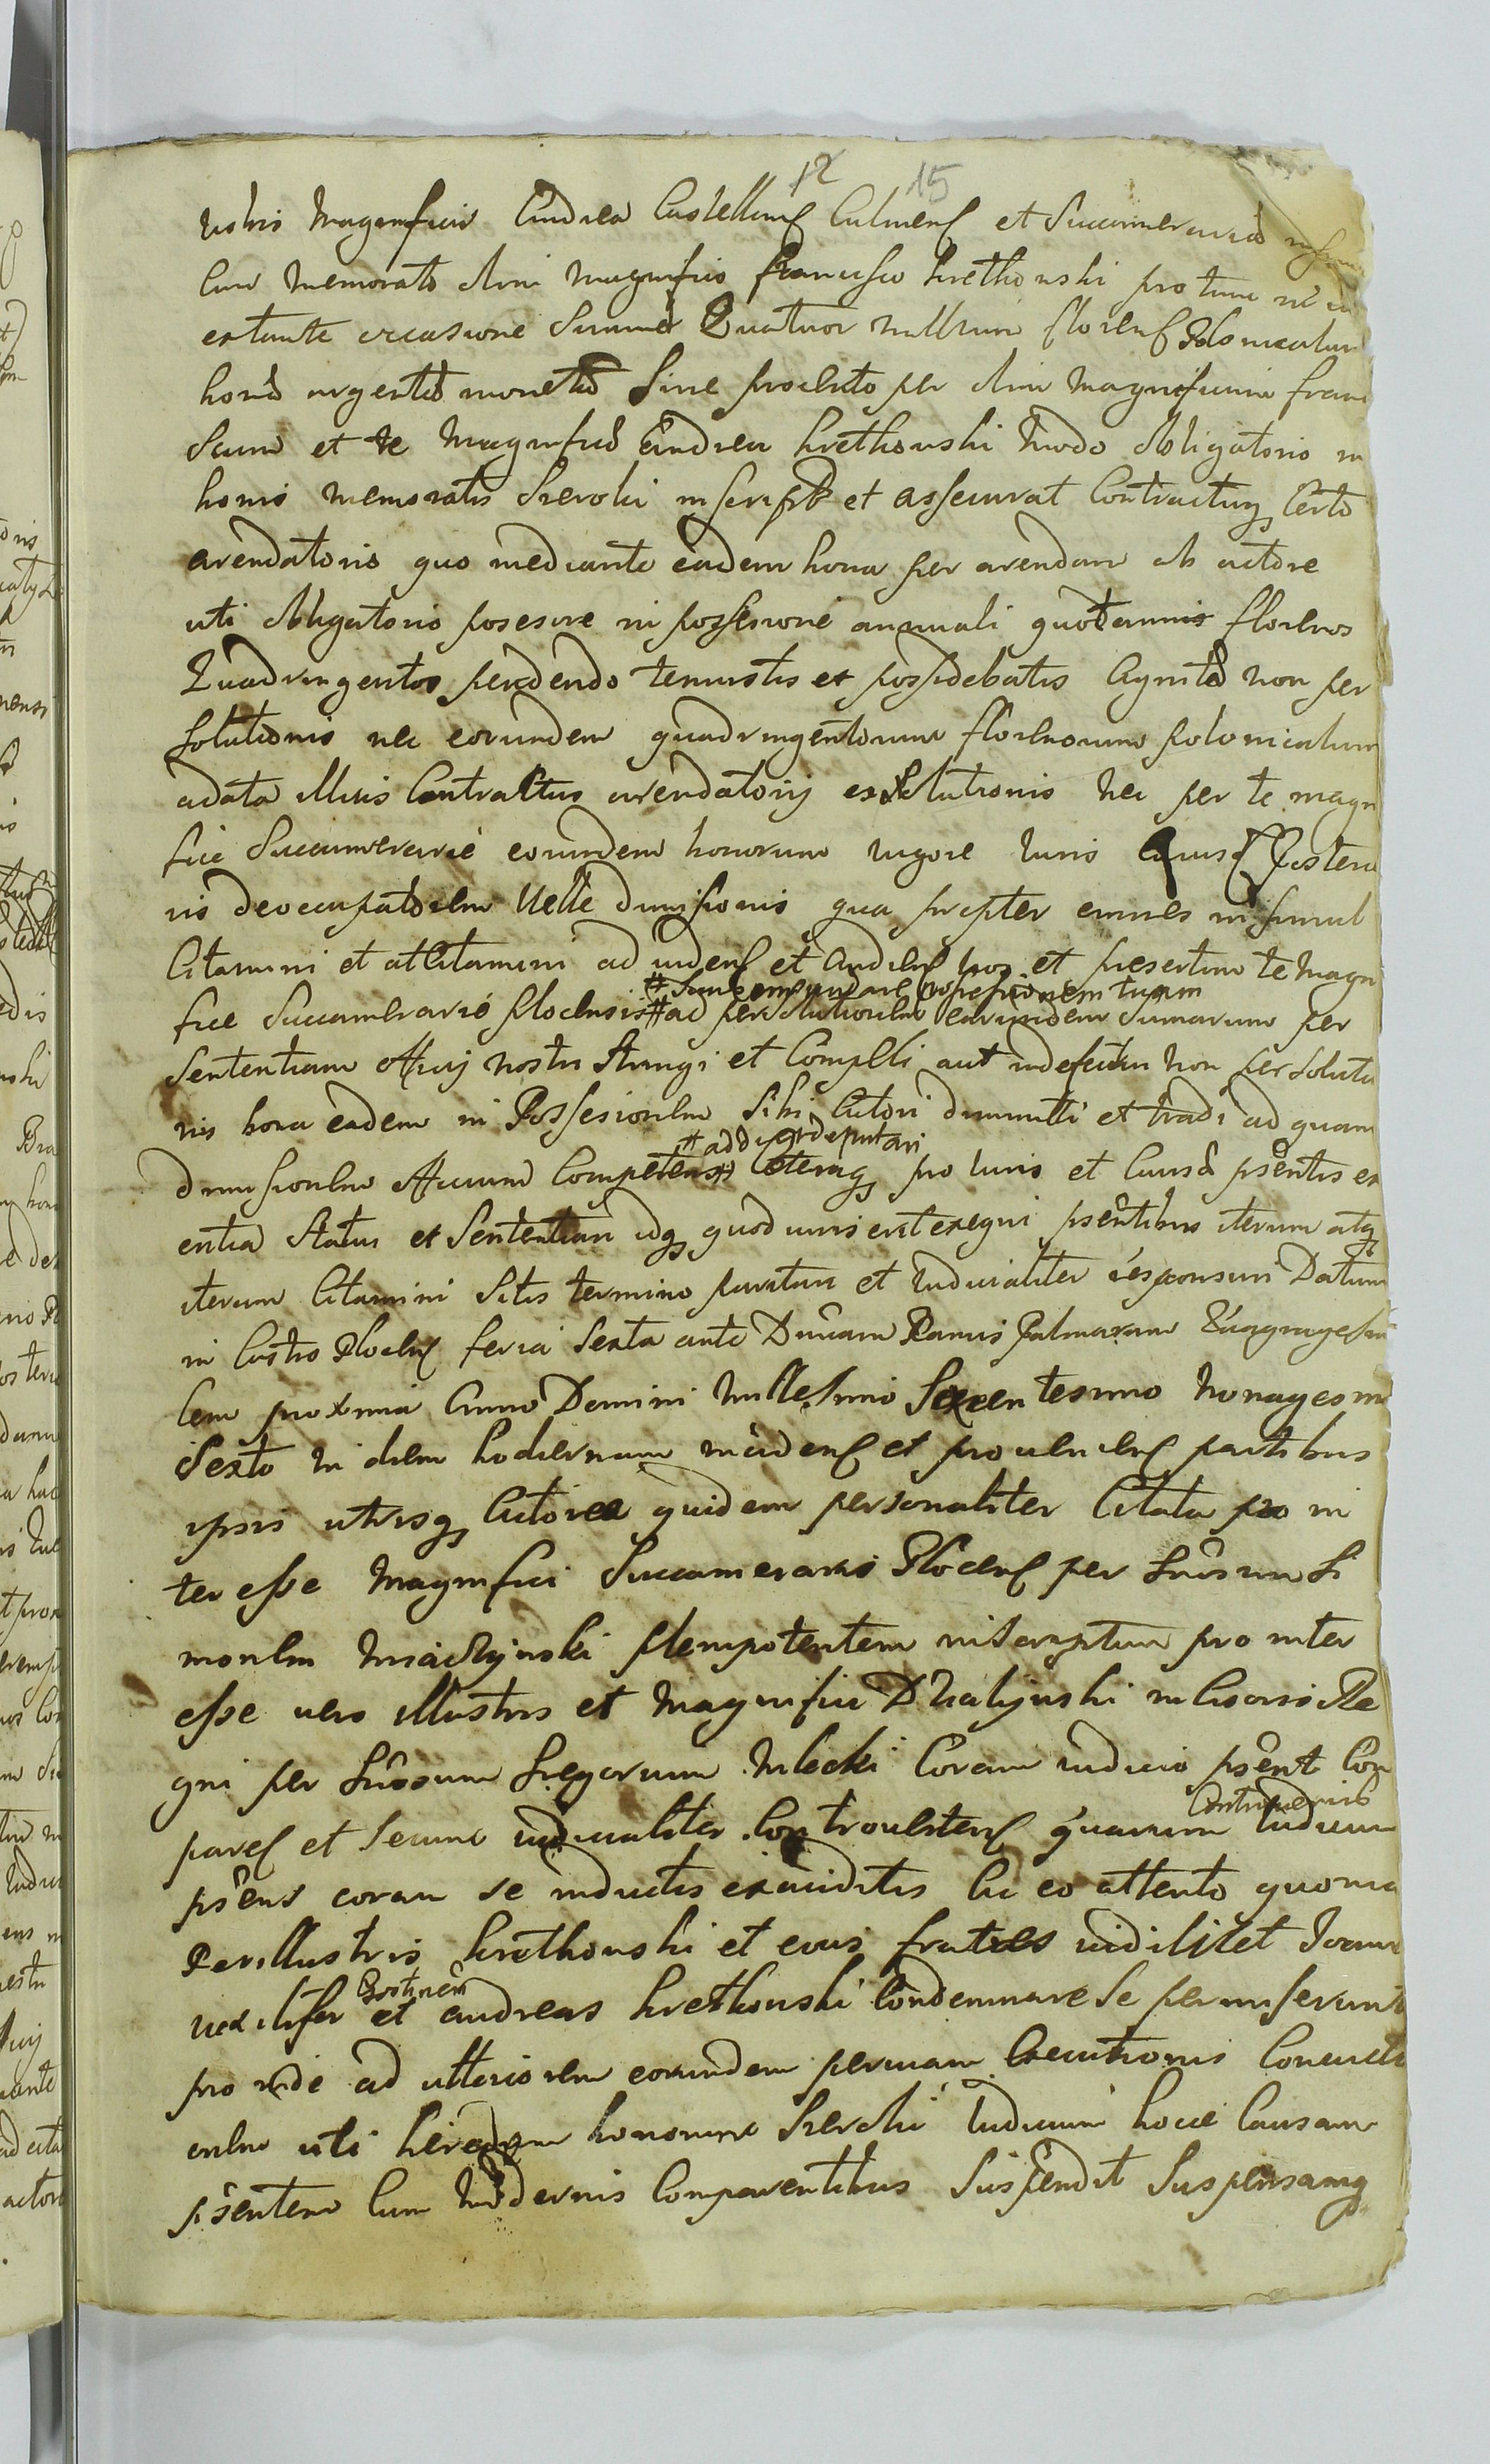 12 15
vobis Magnificis Andrea Castellane Culmens et Succamerario
cum memorato olim Magnifico Francisco Krethowski pro tunc in
extante occasione Summae Quatuor millium florens Polonicalium
bonae argenteae monetae sive provento per olim Magnificum Fran
scum et te Magnifice Andrea Krethowski modo obligatorio in
bonis memoratis Sieroki inscript et assecurat Contractusq Certo
arendatorio quo mediante eadem bona per arendam ab actore
uti obligatorio posesore in possesione annuali quotannis florenos
Quadringentos pendendo tenuistis et possidebatis Agnitae non per
solutionis nec eorundem quadringentorum florenorum polonicalium
a data illius Contractus arendatorij exsolutionis nec per te magni
fice Succamerarie eorundem bonorum vigore Iuris Posterio
ris deoccupatorum Velle dimisionis qua propter omnes insimul
Citamini et attCitamini ad videns et audiens vos et presertim te Magni
# possesionem tuam
fice Succamerarie Plocensis # ad persolutionem earundem Sumarum per
Sententiam Officij nostri Stringi et Compelli aut in defectu non persolutio
nis bona eadem in Possesionem Sibi Actori dimmitti et tradi ad quam
# addi et deputari
dimisionem Officium Competens # Ceteraq pro Iuris et Causae psentis ex
entia Statui et Sententiari idq quod iuris erit exequi psentibus iterum atq
iterum Citamini Sitis termino parituri et Iudicialiter responsuri Datum
in Castro Plocens feria Sexta ante Dnicam Ramis Palmarum Quagragesim
lem proxima Anno Domini Millesimo Sexcentesimo Nonagesimo
Sexto In diem hodiernam incidens et proveniens partibus
ipsis utrisq Actorea quidem personaliter Citata pro in
teresse Magnifici Succamerarii Plocens per Gnosum Si
monem Plenipotentem inscriptum pro inter
esse vero Illustris et Magnifici Dzialynski incisoris Re
gni per Gnosum Gregorium Mlocki Coram iudicio psent Com
parens et Secum iudicialiter Controvertens quarum
Controversiis
Iudicium
psens coram se inductis exauditis Ac eo attento quonia
Perillustris Krethowski et eius fratres videlicet Ioannes
Gostinen
vexilifer et Andreas Krethowski Condemnare Se permiserunt
pro inde ad ulteriorem eorundem per viam Executionis Convicti
onem uti heredem bonorum Sieroki Iudicium hocce Causam
psentem Cum Modernis Comparentibus Suspendit Suspensamq